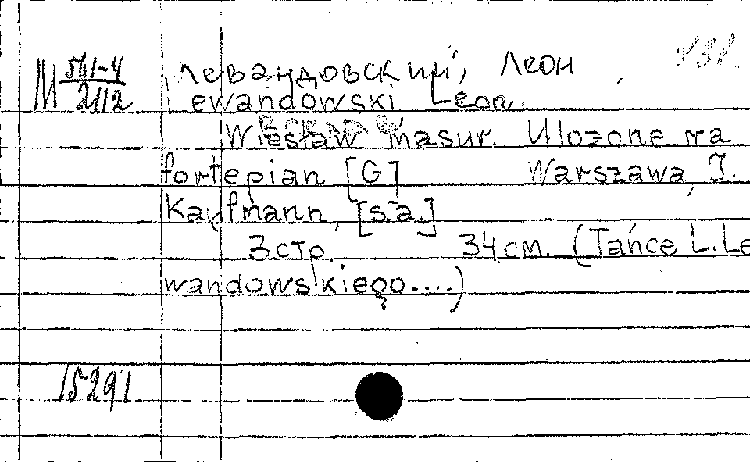 М 561-4/2112
Левандовский, Леон
Lewandowski Leon.
Wiesław masur. Ułozone na
fortepian [G] Warszawa, J.
Kaufmann, [s.a.]
3 стр. 34 см. (Tańce L. Le
wandowskiego....)
15291